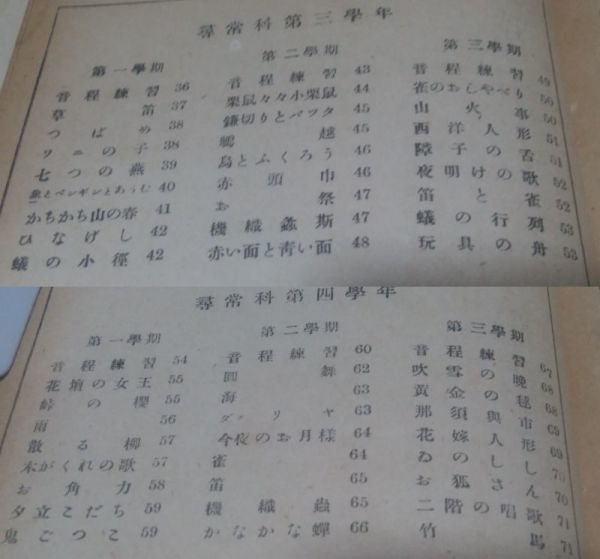 尋常科第三學年
第一學期
音程練習 36
草笛 37
つばめ 38
ワニの子 38
七つの燕 39
とペンギンとあうむ 40
かちかち山の春 41
ひなげし 42
蟻の小徑 42
第二學期
音程練習 43
栗鼠々々小栗鼠 44
鎌切りとバツタ 45
鵯越 45
烏とふくろう 46
赤頭巾 46
お祭 47
機織螽斯 47
赤い面と靑い面 48
第三學期
音程練習 49
雀のおしやべり 50
山火事 50
西洋人形 51
障子の舌 51
夜明けの歌 52
笛と雀 52
蟻の行列 53
玩具の舟 53
尋常科第四學年
第一學期
音程練習 54
花壇の女王 55
峠の櫻 55
雨 56
散る柳 57
木がくれの歌 57
お角力 58
夕立こだち 59
鬼ごつこ 59
第二學期
音程練習 60
圓舞 62
海 63
ダリヤ 63
今夜のお月樣 64
雀 64
笛 65
機織蟲 65
かなかな蟬 66
第三學期
音程練習 67
吹雪の晩 68
黃金の毬 68
那須與市 69
花嫁人形 69
ゐのしし 70
お狐さん 70
二階の唱歌 71
竹馬 71